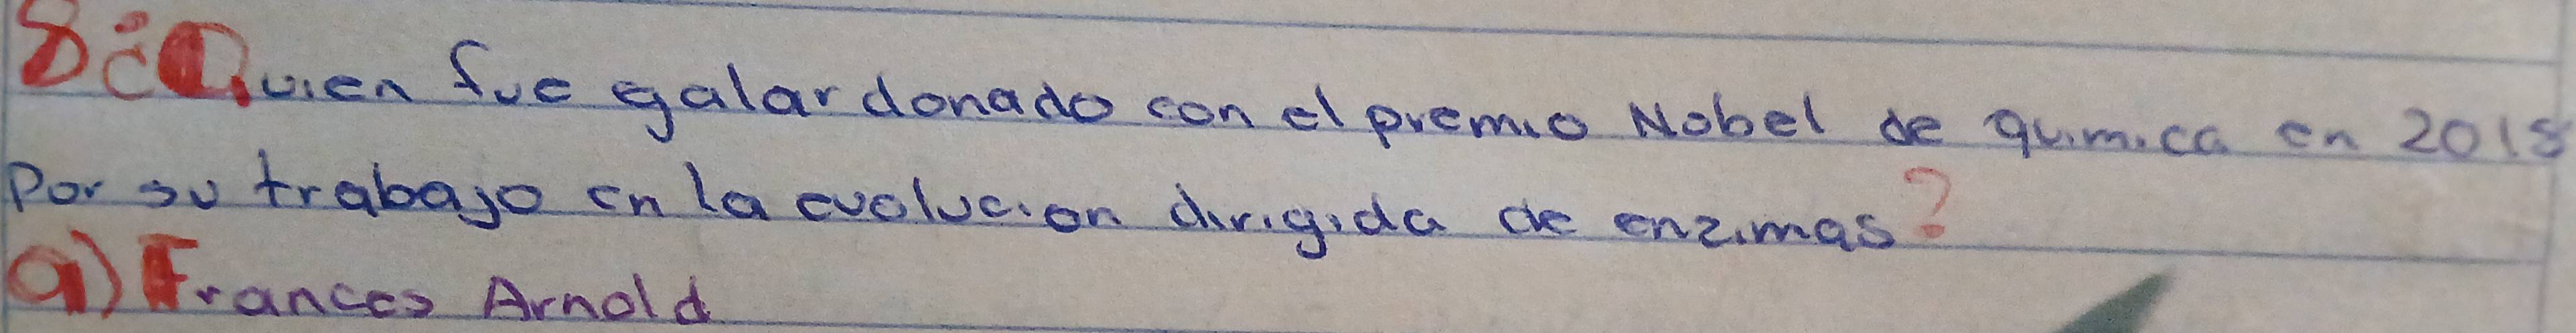 8¿Quien fue galardonado con el premio Nobel de quimica en 2018
Por su trabajo en la evolucion dirigida de enzimas?
a) Frances Arnold